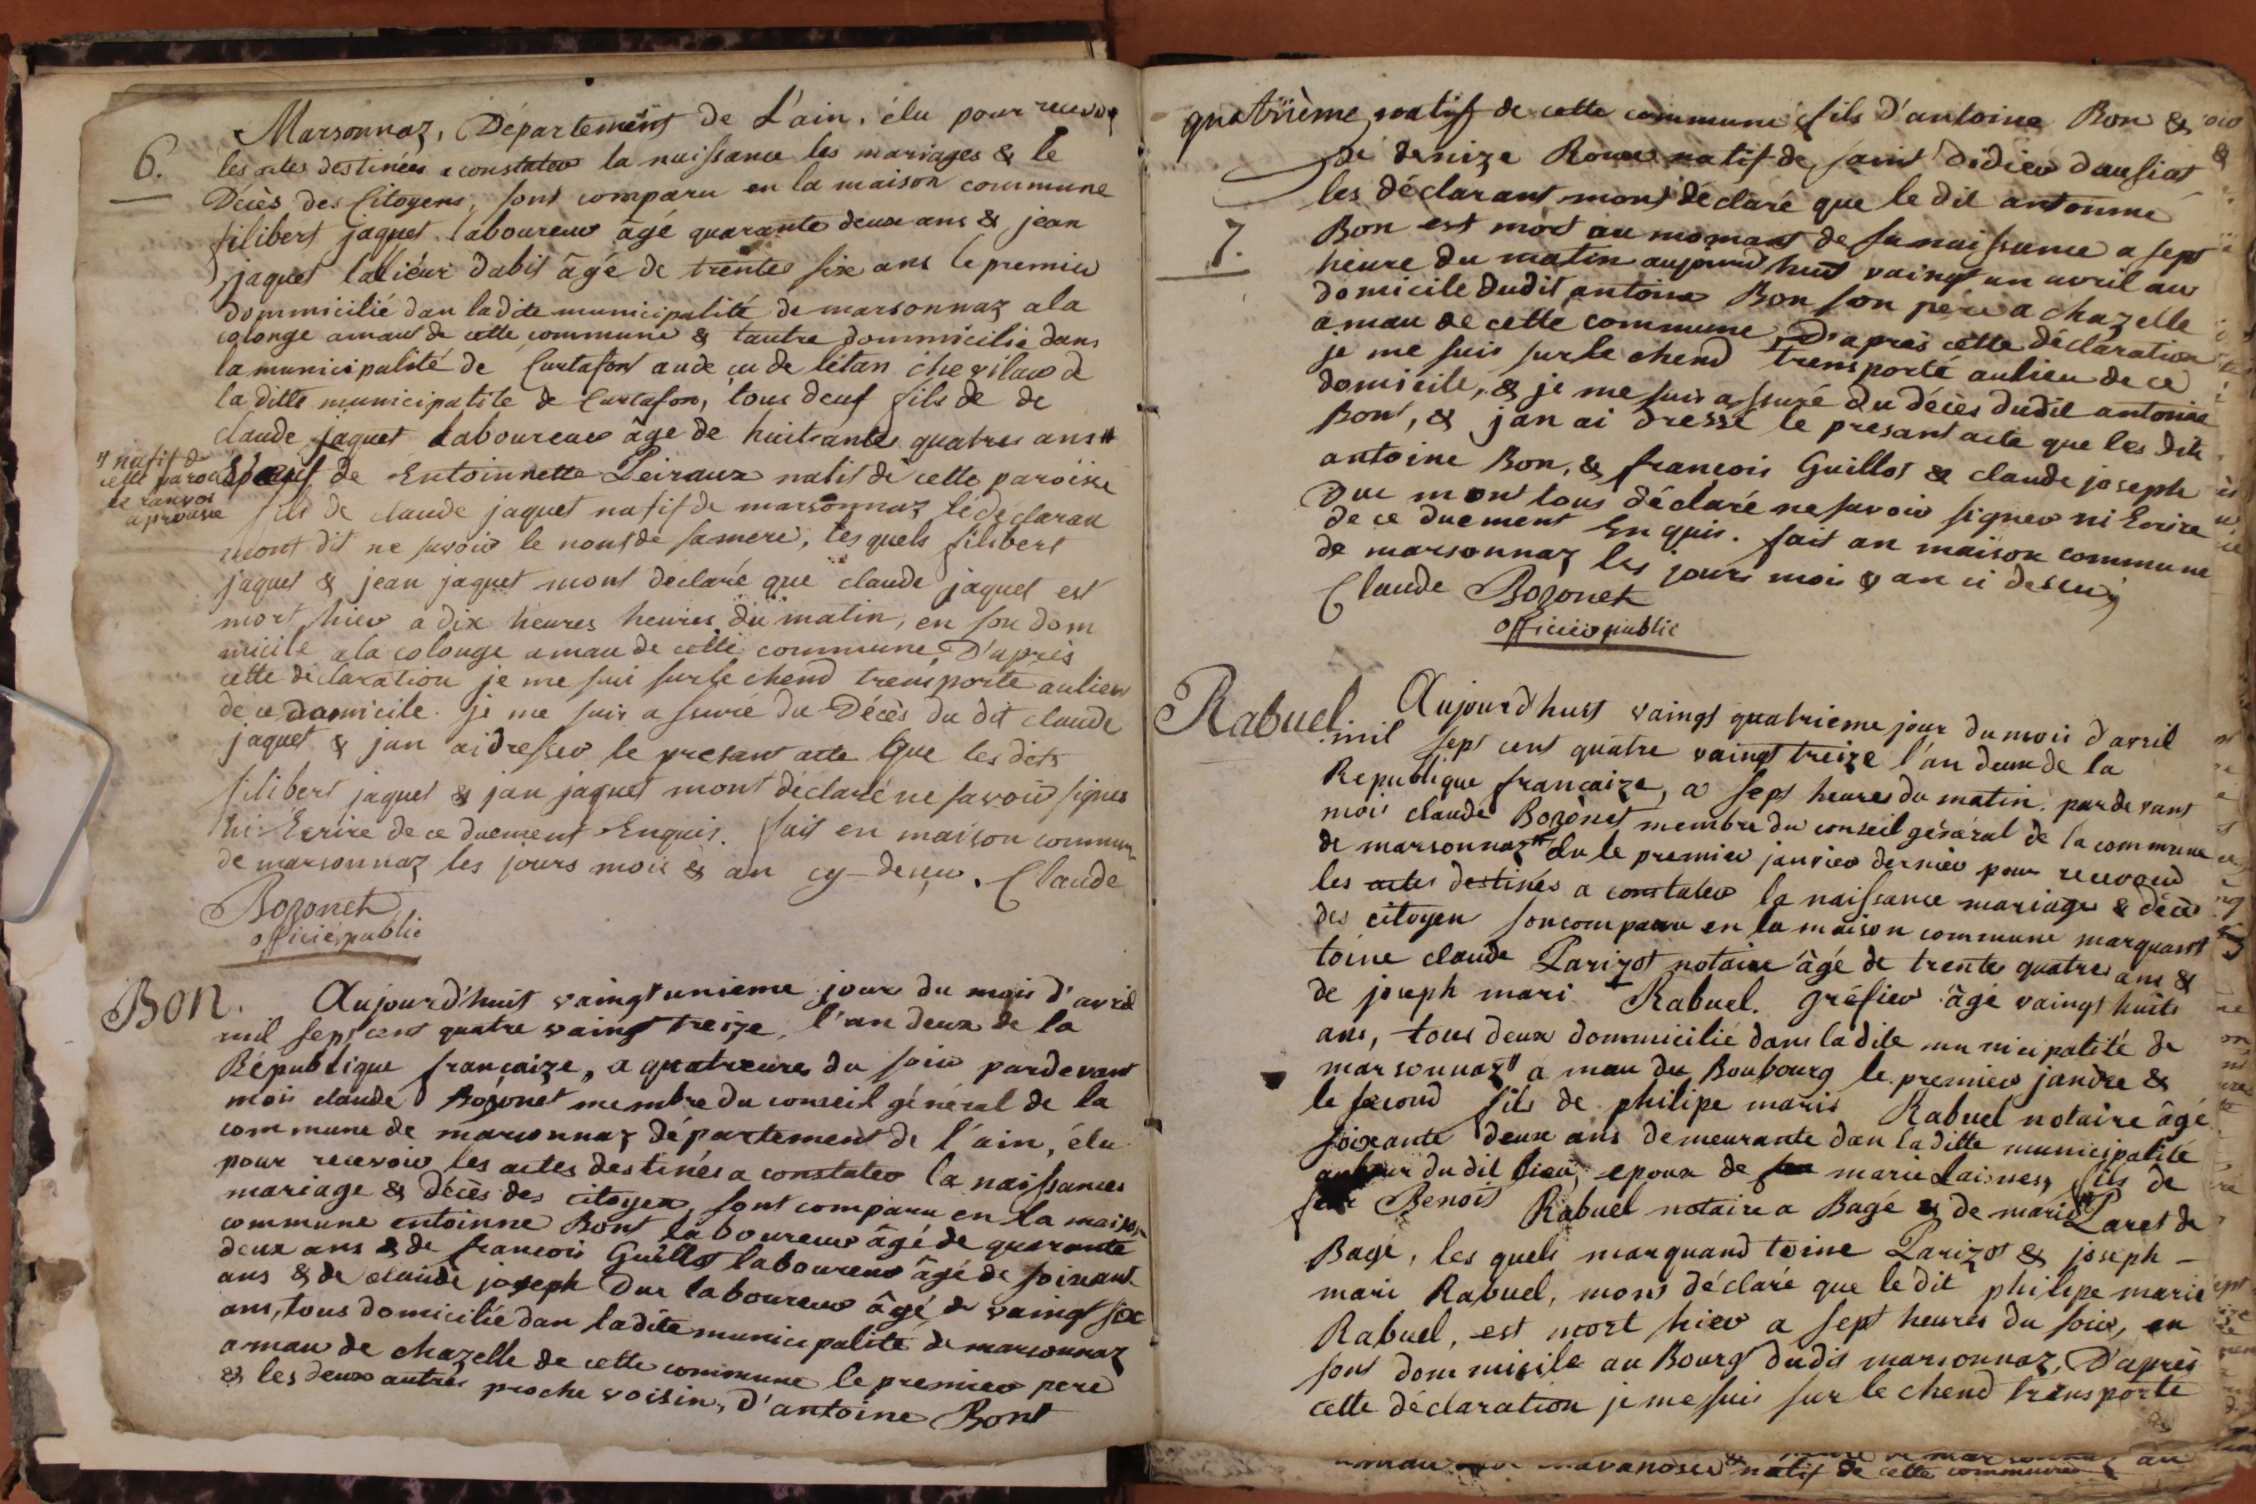 Marsonnaz, Département de L'ain, élu pour recevoi
6.
les actes destinées a constater la naissance les mariages & le
Décès des Citoyens, sont comparu en la maison commune
filibert jaquet laboureur âgé quarante deux ans & jean
jaquet tallieur dabit âgé de trentes six ans le premier
dommicilié dan ladite municipalité de marsonnaz a la
colonge amau de cette commune & lautre dommicilié dans
la municipalité de Curtafon de létan
la ditte municipalité de Curtafon, tous deuf fils de de
claude jaquet Laboureur âge de huitantes quatres ans #
# natif de
cette paroi
le ranvoi
aprouvé
Epouf de Entoinnette Peiraux natif de cette paroisse
fils de claude jaquet natif de marsonnaz lédéclaran
mont dit ne savoir le nom de sa mere, lesquels filibert
jaquet & jean jaquet mont déclaré que claude jaquet est
mort hier a dix heures heures du matin, en son dom
micile a la colonge amau de cette commune, D'après
cette déclaration je me suis surle chend trensporté aulieu
de ce domicile je me suis assure du Décès du dit claude
jaquet & jan ai dresser le presant acte que les dits
filibert jaquet & jan jaquet mont déclaré ne savoir signer
ni Ecrire de ce duement Enquis. fait en maison commun
de marsonnaz les jours mois & an cy-deçu. Claude
Bozonet
officié public
Bon. Aujourd'huit vaingt unieme jour du mois d'avril
mil sept cent quatre vaingt treize, l'an deux de la
République françaize, a quatreures du soir pardevant
moi claude Bozonet membre du conseil général de la
commune de marsonnaz département de l'ain, élu
pour recevoir les actes destinés a constater la naissances
mariage & décès des citoyen, sont comparu en la maison
commune entoinne Bont laboureur âgé de quarante
deux ans & de francois Guillot laboureur âgé de soixant
ans & de claude joseph Duc laboureur âgé de vaingt six
ans, tous domicilié dan ladite municipalité de marsonnaz
amau de chazelle de cette commune le premier pere
& les deux autres proche voisin, d'antoine Bont
quatrième, natif de cette commune fils d'antoine Bon &
de denize Roux natif de saint didier daussiat
les déclarant mont déclaré que le dit antoinne
7.
Bon est mort au momant de sa naissance a sept
heure du matin aujourd huit vaingt un avril au
domicile dudit antoine Bon son pere a chazelle
amau de cette commune, D'après cette déclaration
je me suis surle chend trensporté aulieu de ce
domicile, & je me suis assuré du décès dudit antoine
Bont, & jan ai dressé le presant acte que les dits
antoine Bon, & francois Guillot & claude joseph
Duc mont tous déclaré ne savoir signer ni Ecrire
de ce duement Enquis. fait an maison commune
de marsonnaz les jours mois & an ci dessu,
Claude Bozonet
officier public
Rabuel. Aujourdhuit vaingt quatrieme jour du mois d'avril
mil sept cent quatre vaingt treize l'an deux de la
Republique françaize, a sept heures du matin pardevant
moi claude Bozonet membre du conseil général de la commune
de marsonnaz élu le premier janvier dernier pour recevoir
les actes destinés a constater la naissance mariage & décès
des citoyen soncomparu en la maison commune marquant
toine claude Parizot notaire âgé de trentes quatres ans &
de joseph mari Rabuel. gréfier âgé vaingt huits
ans, tous deux dommicilié dans ladite municipalité de
marsonnaz a mau du Boubourg le premier jandre &
le second fils de philipe marie Rabuel notaire âgé
soixante deux ans demeurante dan laditte municipalité
du dit lieu, epoux de marie Laisney, fils de
feu Benoit Rabuel notaire a Bagé & de marie Paret de
Bagé, les quels marquand toine Parizot & joseph-
mari Rabuel, mont déclaré que le dit philipe marie
Rabuel, est mort hier a sept heures du soir, en
sont dommisile au Bourg dudit marsonnaz, D'après
cette déclaration je me suis sur le chend transporté
natif de cette commune